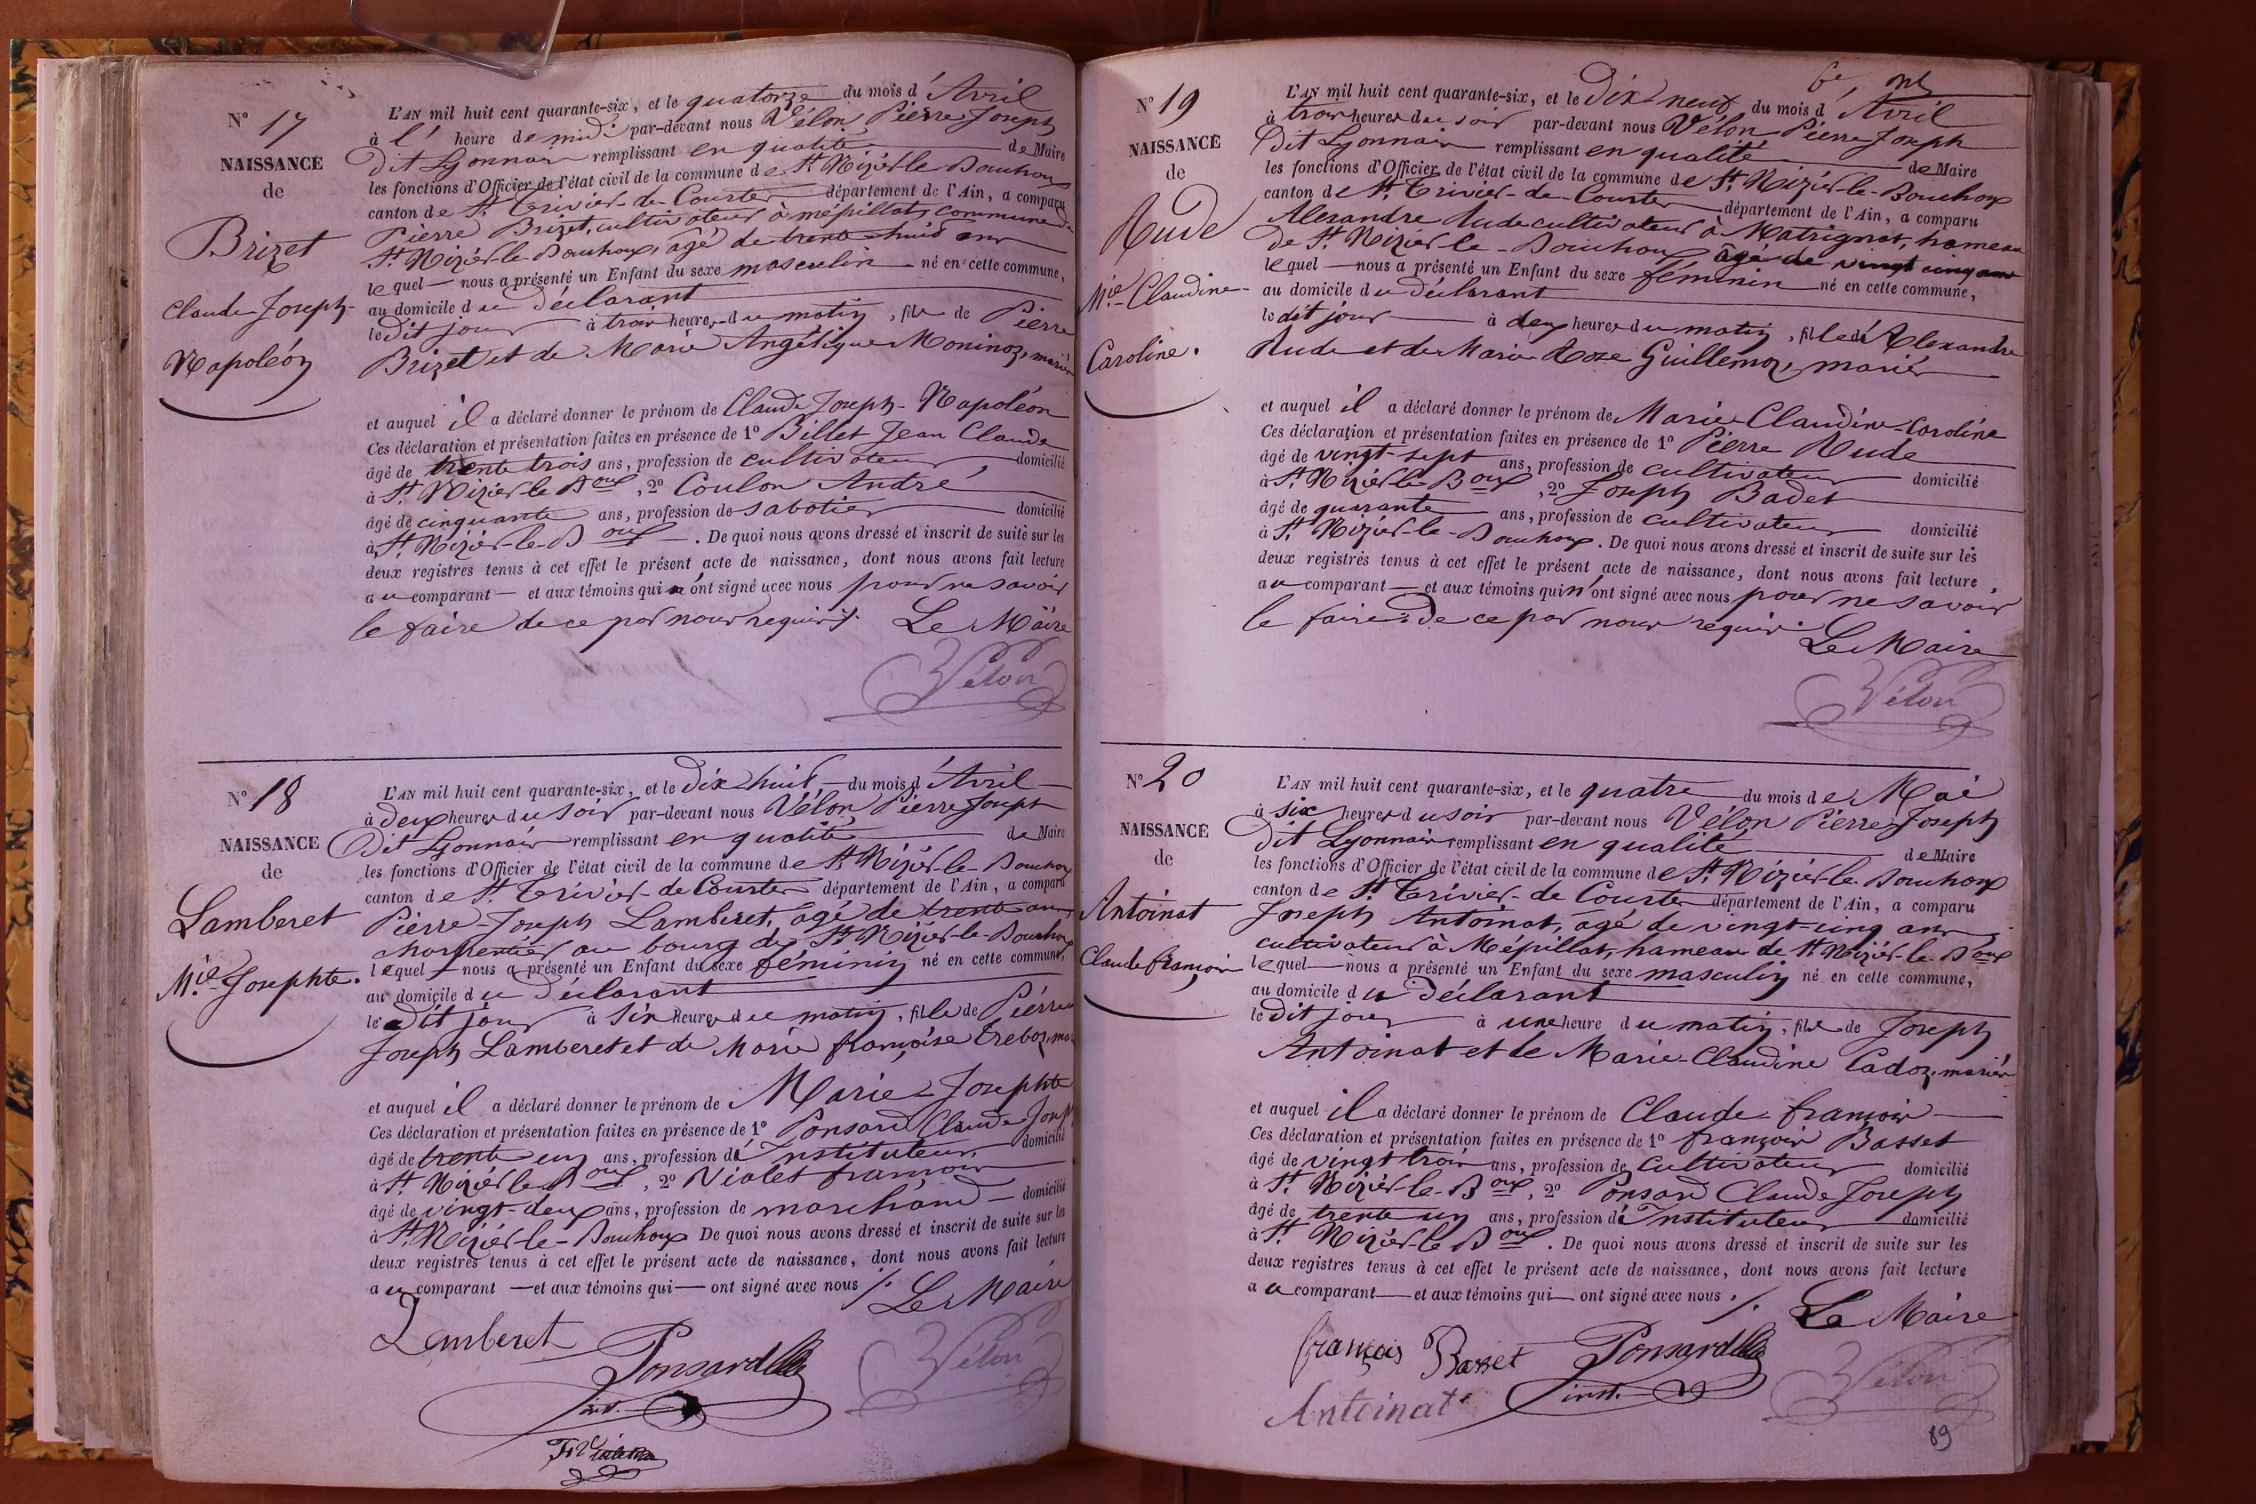 N° 17
NAISSANCE
de
Brizet
Claude Joseph-
Napoléon
L'AN mil huit cent quarante-six, et le quatorze du mois d'Avril
à l' heure de midi par-devant nous Vélon Pierre Joseph
Dit Lyonnais remplissant en qualité de Maire
les fonctions d'Officier de l'état civil de la commune de St. Nizier-le-Bouchoux
canton de St. Trivier-de-Courtes département de l'Ain, a comparu
Pierre Brizet, cultivateur à mépillat, commune de
St. Nizier-le-Bouhoux, âgé de trente-huit ans
lequel — nous a présenté un Enfant du sexe masculin né en cette commune,
au domicile du déclarant
le dit jour à trois heures du matin, fils de Pierre
Brizet et de Marie Angélique Moninoz, mariés
et auquel il a déclaré donner le prénom de Claude Joseph-Napoléon
Ces déclaration et présentation faites en présence de 1° Billet Jean Claude
âgé de trente trois ans, profession de cultivateur domicilié
à St. Nizier le Boux, 2° Coulon André
âgé de cinquante ans, profession de sabotier domicilié
à St. Nizier-le-Boux. De quoi nous avons dressé et inscrit de suite sur les
deux registres tenus à cet effet le présent acte de naissance, dont nous avons fait lecture
au comparant — et aux témoins qui n'ont signé avec nous pour ne savoir
le faire de ce par nous requis ./. Le Maire
Vélon
N° 18
NAISSANCE
de
Lamberet
Mie. Josephte.
L'AN mil huit cent quarante-six, et le dix-huit du mois d'Avril
à deux heures du soir par-devant nous Vélon Pierre Joseph
Dit Lyonnais remplissant en qualité de Maire
les fonctions d'Officier de l'état civil de la commune de St. Nizier-le-Bouchoux
canton de St. Trivier-de-Courtes département de l'Ain, a comparu
Pierre-Joseph Lamberet, âgé de trente ans
charpentier au bourg de St. Nizier-le-Bouchoux
lequel — nous a présenté un Enfant du sexe féminin né en cette commune,
au domicile du déclarant
le dit jour à six heures du matin, fille de Pierre
Joseph Lamberet et de Marie françoise Treboz, mar
et auquel il a déclaré donner le prénom de Marie-Josephte
Ces déclaration et présentation faites en présence de 1° Ponsard Claude Joseph
âgé de trente un ans, profession d'Instituteur domicilié
à St. Nizier le Boux, 2° Violet françois
âgé de vingt-deux ans, profession de marchand — domicilié
à St. Nizier-le-Bouchoux De quoi nous avons dressé et inscrit de suite sur les
deux registres tenus à cet effet le présent acte de naissance, dont nous avons fait lecture
au comparant — et aux témoins qui — ont signé avec nous ./. Le Maire
Lamberet
Ponsard
inst.
Vélon
Fs Violet
N° 19
NAISSANCE
de
Rude
Mie-Claudine-
Caroline.
L'AN mil huit cent quarante-six, et le Dix-neuf du mois d'Avril
à trois heures du soir par-devant nous Vélon Pierre Joseph
Dit Lyonnais remplissant en qualité de Maire
les fonctions d'Officier de l'état civil de la commune de St. Nizier-le-Bouchoux
canton de St. Trivier-de-Courtes département de l'Ain, a comparu
Alexandre Rude cultivateur à Matrignat, hameau
de St. Nizier-le-Bouchoux âgé de vingt cinq ans
lequel — nous a présenté un Enfant du sexe féminin né en cette commune,
au domicile du déclarant
le dit jour à deux heures du matin, fille d'Alexandre
Rude et de Marie Roze Guillemoz, mariés
et auquel il a déclaré donner le prénom de Marie-Claudine-Caroline
Ces déclaration et présentation faites en présence de 1° Pierre Rude
âgé de vingt-sept ans, profession de cultivateur domicilié
à St. Nizier le Boux, 2° Joseph Badet
âgé de quarante ans, profession de cultivateur domicilié
à St. Nizier-le-Bouchoux. De quoi nous avons dressé et inscrit de suite sur les
deux registres tenus à cet effet le présent acte de naissance, dont nous avons fait lecture
au comparant — et aux témoins qui n'ont signé avec nous pour ne savoir
le faire de ce par nous requis.
Le Maire
Vélon
N° 20
NAISSANCE
de
Antoinat
Claude françois
L'AN mil huit cent quarante-six, et le quatre du mois de Mai
à six heures du soir par-devant nous Vélon Pierre Joseph
Dit Lyonnais remplissant en qualité de Maire
les fonctions d'Officier de l'état civil de la commune de St. Nizier le Bouchoux
canton de St. Trivier-de-Courtes département de l'Ain, a comparu
Joseph Antoinat, âgé de vingt-cinq ans
cultivateur à Mépillat, hameau de St. Nizier-le-Boux
lequel — nous a présenté un Enfant du sexe masculin né en cette commune,
au domicile du déclarant
le dit jour à une heure du matin, fils de Joseph
Antoinat et de Marie-Claudine Cadoz, mariés
et auquel il a déclaré donner le prénom de Claude-françois
Ces déclaration et présentation faites en présence de 1° françois Basset
âgé de vingt trois ans, profession de cultivateur domicilié
à St. Nizier-le-Boux, 2° Ponsard Claude Joseph
âgé de trente un ans, profession d'Instituteur domicilié
à St. Nizier-le-Boux. De quoi nous avons dressé et inscrit de suite sur les
deux registres tenus à cet effet le présent acte de naissance, dont nous avons fait lecture
au comparant — et aux témoins qui — ont signé avec nous ./.
Le Maire
françois Basset
Ponsard
inst.
Antoinat
Vélon
89